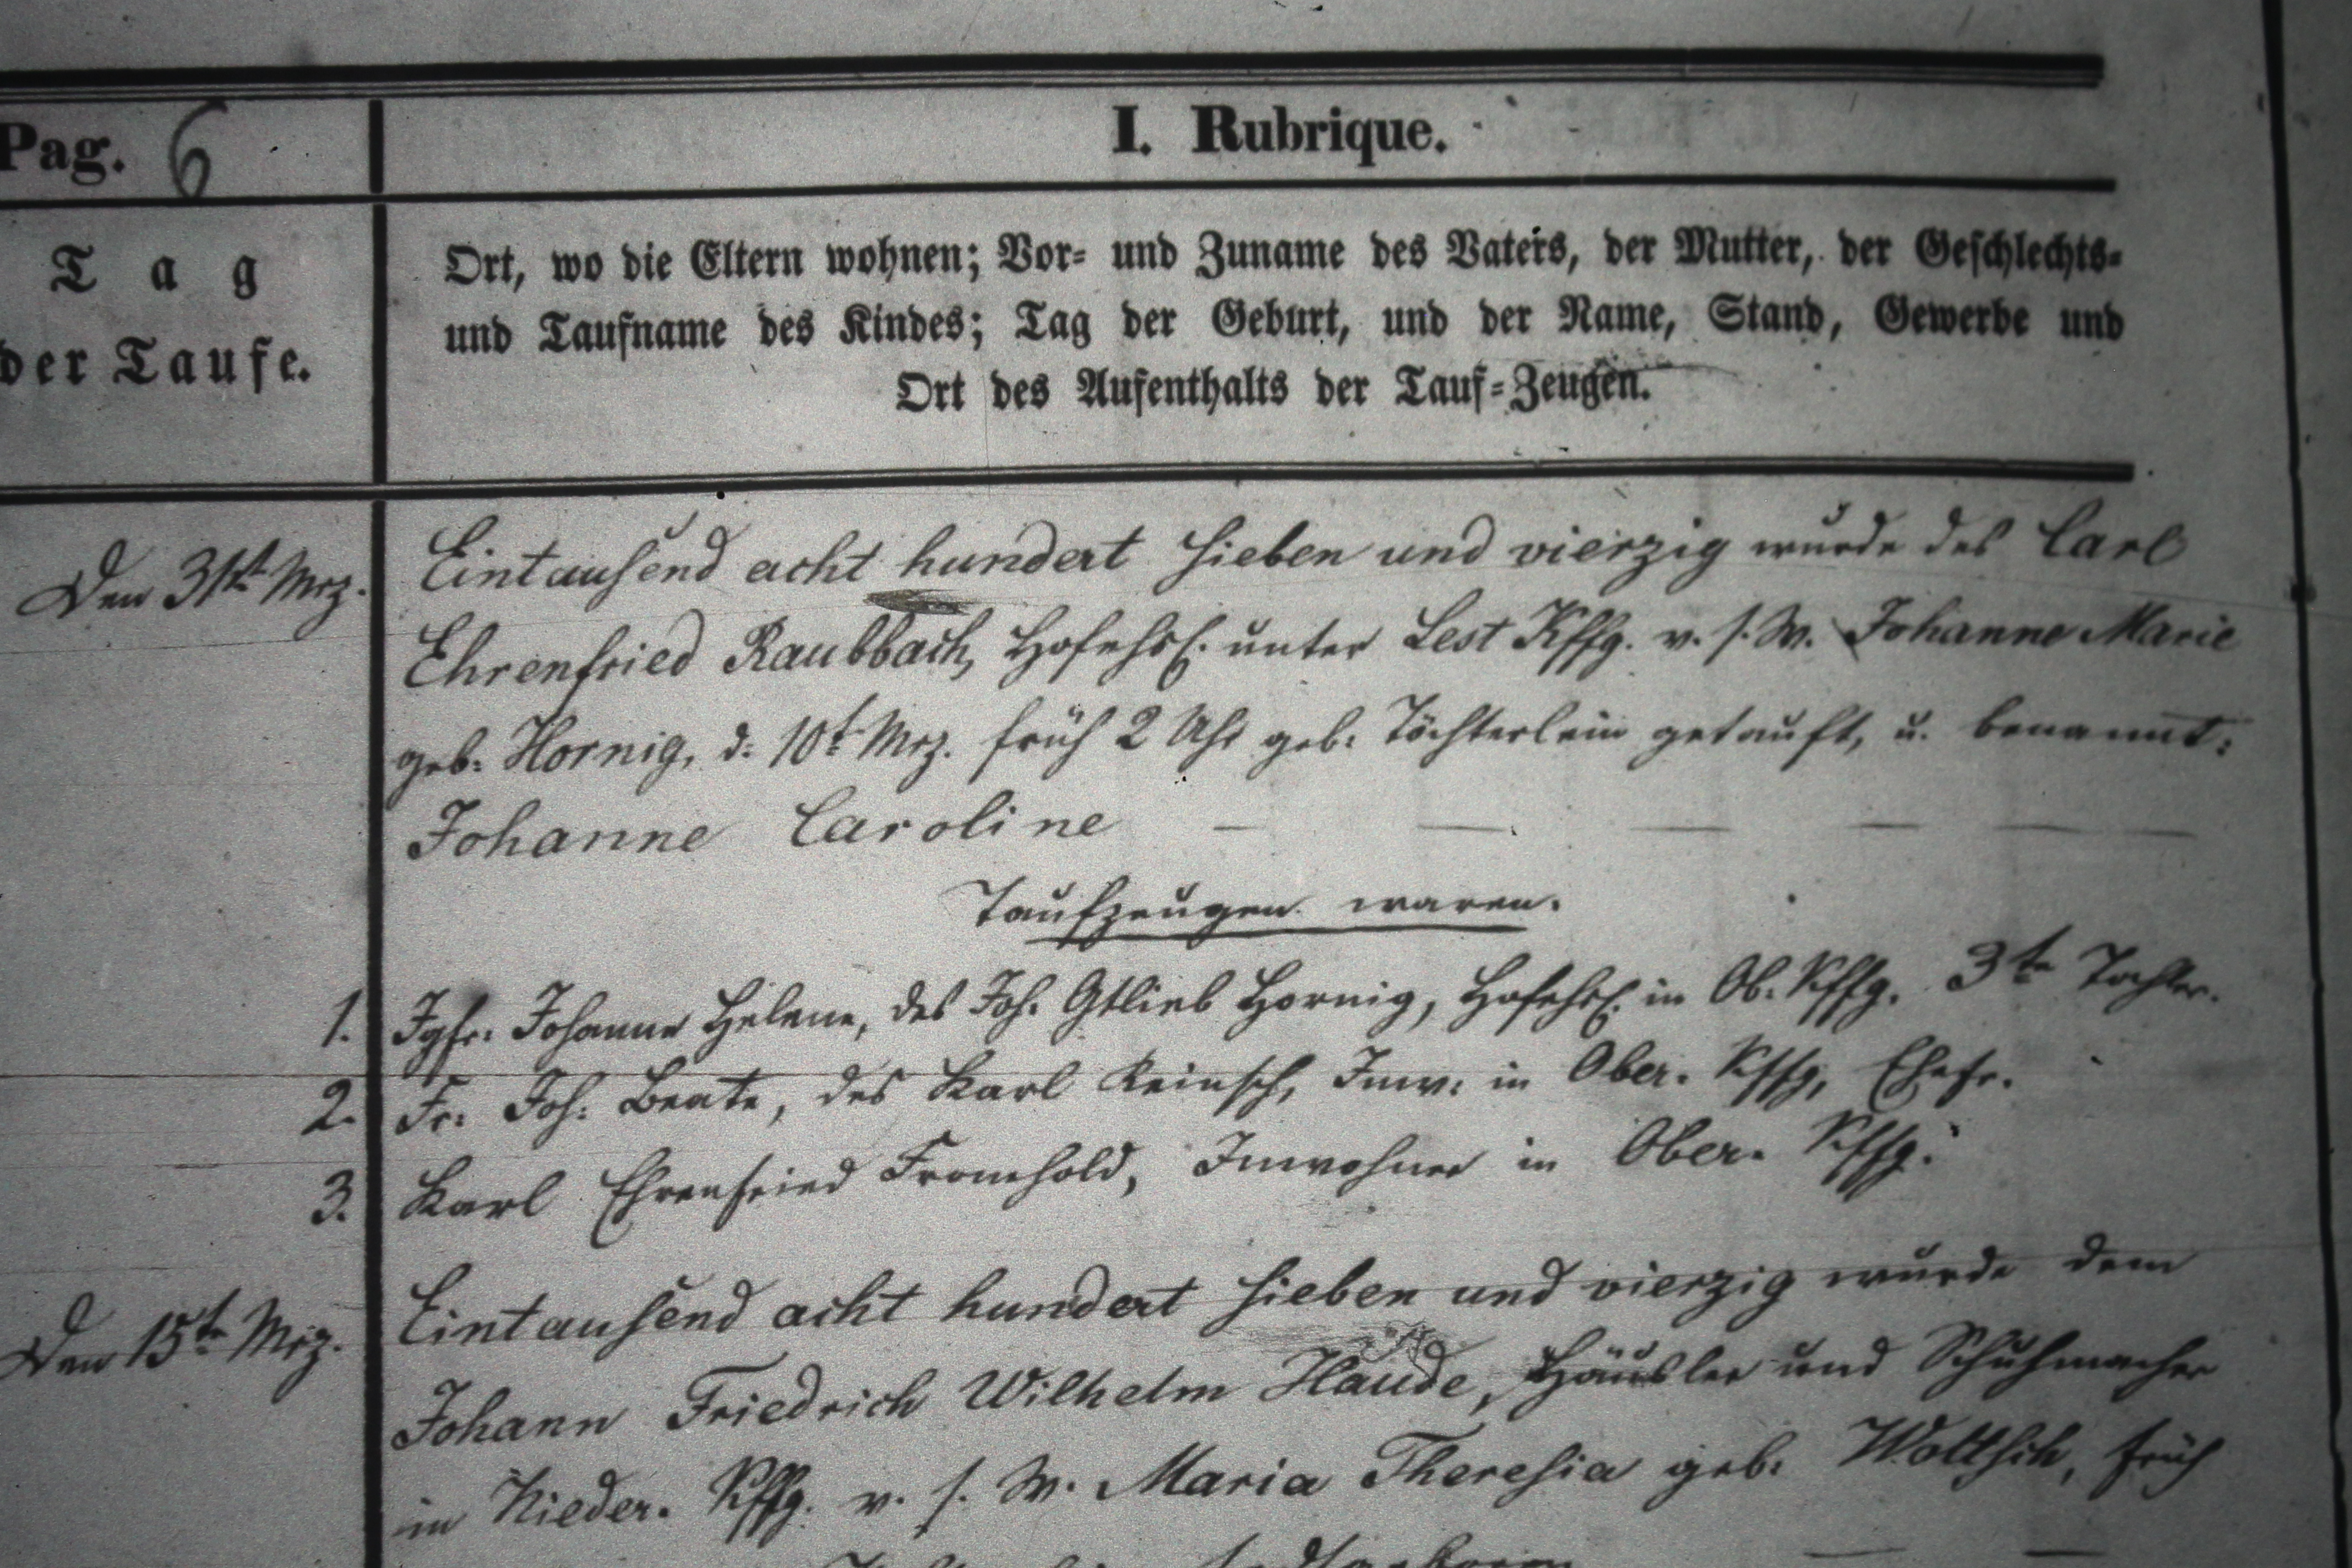 Pag. 6
I. Rubrique.
Tag
der Taufe.
Ort, wo die Eltern wohnen; Vor- und Zuname des Vaters, der Mutter, der Geschlechts-
und Taufname des Kindes; Tag der Geburt, und der Name, Stand, Gewerbe und
Ort des Aufenthalts der Tauf-Zeugen.
Den 31st. Mrz. Eintausend acht hundert sieben und vierzig wurde des Carl
Ehrenfried Raubbach, Hofehsl. unter Lest Kffg. v. s. W. Johanne Marie
geb: Hornig, d: 10t Mrz. früh 2 Uhr geb: Töchterlein getauft, u. benannt:
Johanne Caroline — — — — —
Taufzeugen waren.
1. Jgfr. Johanne Helene, des Joh. Gtlieb Hornig, Hofehsl. in Ob. Kffg. 3te Tochter.
2. Fr: Joh: Beate, des Karl Reinsch, Inw: in Ober. Kffg, Ehefr.
3. Karl Ehrenfried Fromhold, Inwohner in Ober. Kffg.
Den 15te Mrz. Eintausend acht hundert sieben und vierzig wurde dem
Johann Friedrich Wilhelm Haude, Häusler und Schuhmacher
in Nieder. Kffg. v. s. W. Maria Theresia geb: früh